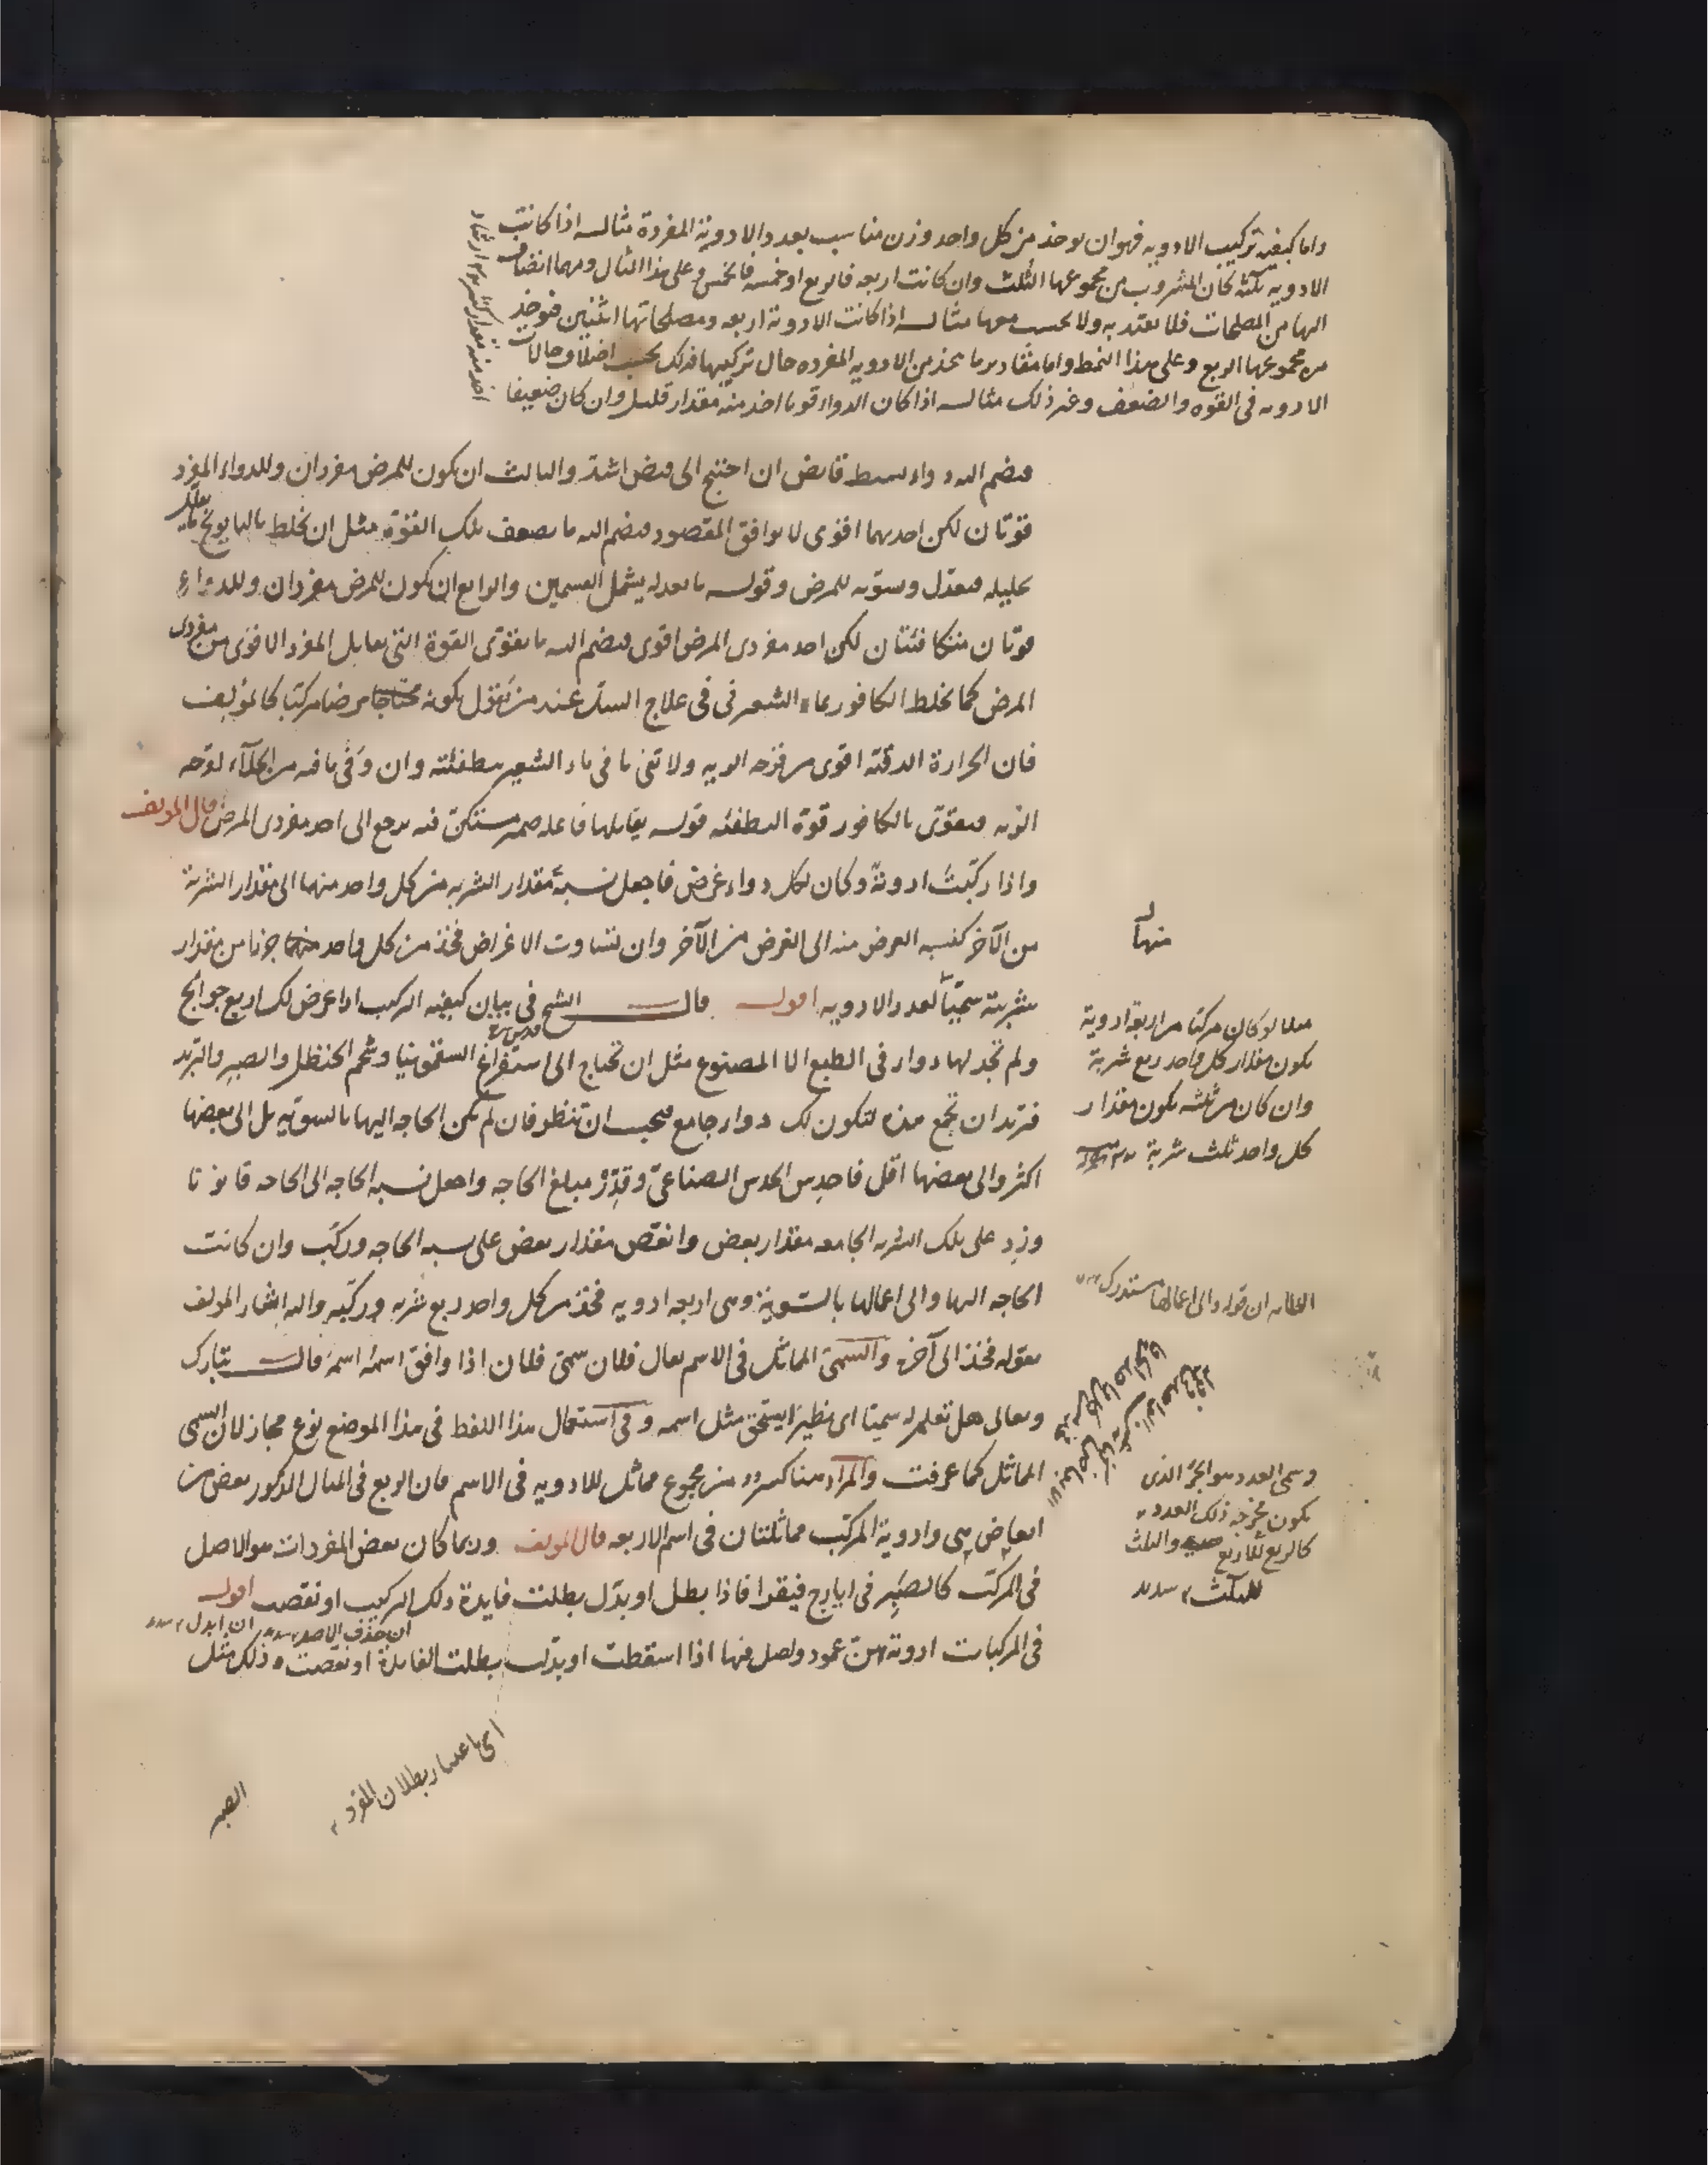 واما كيفية تركيب الادويه فهو ان يوخذ من كل واحد وزن مناسب بعدد الادوية المفردة مثاله اذا كانت
الادويه ثلثة كان المشروب من مجموعها الثلث وان كانت اربعه فالربع او خمسه فالخمس وعلى هذا المثال ومهما انضاف
اليها من المصلحات فلا يعتد به ولا يحسب معها مثاله اذا كانت الادوية اربعه ومصلحاتها اثنين فيوخذ
من مجموعها الربع وعلى هذا النمط واما مقادير ما يتخذ من الادويه المفرده حال تركيبها فذلك بحسب اختلاف حالات
الادويه فى القوه والضعف وغير ذلك مثاله اذا كان الدواء قويا اخذ منه مقدار قليل وان كان ضعيفا
فيضم اليه دواء بسيط قابض ان احتيج الى قبض اشد والثالث ان يكون للمرض مفردان وللدواء المفرد
قوتان لكن احديهما اقوى لا يوافق المقصود فيضم اليه ما يضعف تلك القوة مثل ان يخلط بالبابونج ما يقلل
تحليله فيعدل وسوّيه للمرض وقوله ما يعدله يشمل القسمين والرابع ان يكون للمرض مفردان وللدواء
قوتان متكافئتان لكن احد مفردى المرض اقوى فيضم اليه ما يقوى القوة التى يقابل المفرد الاقوى من مفردى
المرض كما يخلط الكافور بماء الشعير فى فى علاج السل عند من يقول بكونه مرضا مركبا كالمؤلف
فان الحرارة الدقيّه اقوى من قرحه الريه ولا تفى ما فى ماء الشعير بتطفئته وان وَفّى ما فيه من الجلاء لقرحه
الريه فيقوّى بالكافور قوة التطفئه قوله يقابلها فاعله ضمير مستكن فيه يرجع الى احد مفردى المرض قال المولف
واذا ركّبتَ ادويةً وكان لكل دواء غرض فاجعل نسبةَ مقدار الشربه من كل واحد منهما الى مقدار الشربة
من الآخر كنسبه الغرض منه الى الغرض من الآخر وان تساوت الاغراض فخذ من كل واحد جزءا من مقدار
منها
شربته سميّاً لعدد الادويه اقول قال الشيخ فى بيان كيفيه التركيب اذا عرض لك اربع حوايج
قدس سره
ولم تجد لها دواء فى الطبع الا المصنوع مثل ان تحتاج الى استفراغ السقمونيا وشحم الحنظل والصبر والتربد
فتريد ان تجمع هذه لتكون لك دواء جامع فيجب ان تنظر فان لم يكن الحاجه اليها بالسويّه بل الى بعضها
اكثر والى بعضها اقل فاحدِس الحدس الصناعىّ وقدِّر مبلغ الحاجه واجعل نسبه الحاجه الى الحاجه قانونا
وزِد على تلك الشربه الجامعه مقدار بعض وانقص مقدار بعض على نسبه الحاجه وركّب وان كانت
الحاجه اليها والى اعمالها بالسّوية وهى اربعه ادويه فخذ من كل واحد ربع شربه وركّبه واليه اشار المولف
بقوله فخذ الى آخره والسمىّ المماثل فى الاسم يقال فلان سمىّ فلان اذا وافق اسمُه اسمَه قال تبارك
وتعالى هل تعلم له سميّا اى نظيرا يستحق مثل اسمه وفى استعمال هذا اللفظ فى هذا الموضع نوع مجاز لان السمى
المماثل كما عرفت والمراد هنا كسر من مجموع مماثل للادويه فى الاسم فان الربع فى المثال المذكور بعض من
ابعاض هى وادوية المركب مماثلتان فى اسم الاربعه قال المولف وربما كان بعض المفردات هو الاصل
فى المركّب كالصَبِر فى ايارج فيقرا فاذا بطل او بدّل بطلت فايدة ذلك التركيب او نقصت اقول
ان حذف الاصل ان ابدل
فى المركبات ادوية هى عمود واصل فيها اذا اسقطت او بدّلت بطلت الفايدة او نقصت وذلك مثل
مثلا لو كان مركبا من اربعة ادوية
يكون مقدار كل واحد ربع شربة
وان كان من ثلثه يكون مقدار
كل واحد ثلث شربة
الظاهر ان قوله والى اعمالها مستدرك
وسمى العدد هو الجزؤ الذى
يكون مخرجه ذلك العدد
كالربع للاربع والثلث
للثلث
اى باعتبار بطلان المفرد
الصبر